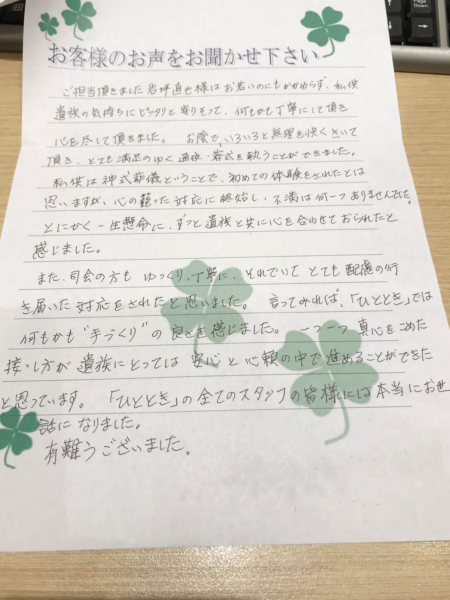 お客様のお声をお聞かせ下さい
ご担当頂きました岩坪直也様はお若いのにもかかわらず、私供
遺族の気持ちにピッタリと寄りそって、何もかも丁寧にして頂き
心を尽して頂きました。 お陰で、いろいろと無理を快くきいて
頂き、とても満足のゆく通夜・葬式を執うことができました。
私供は神式葬儀ということで、初めての体験をされたとは
思いますが、心の籠った対応に終始し、不満は何一つありませんでした。
とにかく一生懸命に、ずっと遺族と共に心を合わせておられたと
感じました。
また、司会の方も ゆっくり、丁寧に、それでいて とても配慮の行
き届いた対応をされたと思いました。 言ってみれば、「ひととき」では
何もかも"手づくり"の良さを感じました。 一つ一つ真心をこめた
接し方が遺族にとっては 安心と信頼の中で進めることができた
と思っています。 「ひととき」の全てのスタッフの皆様には本当にお世
話になりました。
有難うございました。